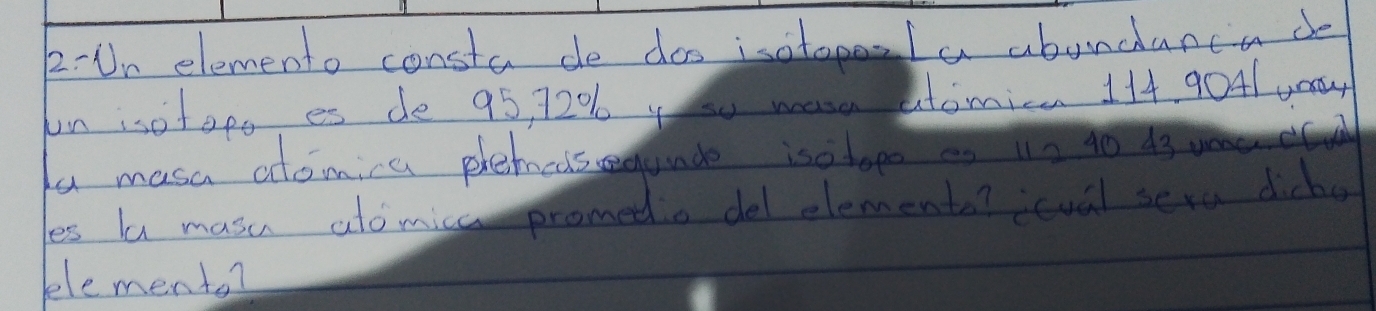 2-Un elemento consta de dos isótopos La abundancia de
un isotopo es de 95,72% y su masa atómica 114.9041 uma y
la masa atómica del segundo isótopo es 112.9043 uma ¿Cuál
es la masa atómica promedio del elemento? ¿cuál sera dicho
elemento?